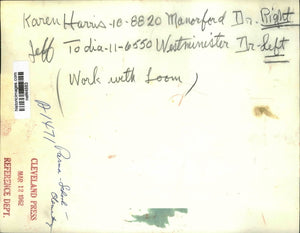 Karen Harris-10-8820 Manorford Dr. Right
Jeff Todia-11-6550 Westminister Dr-Left
(Work with Loom)
A1471
Parma-School-
CLEVELAND PRESS
MAR 12 1962
REFERENCE DEPT.